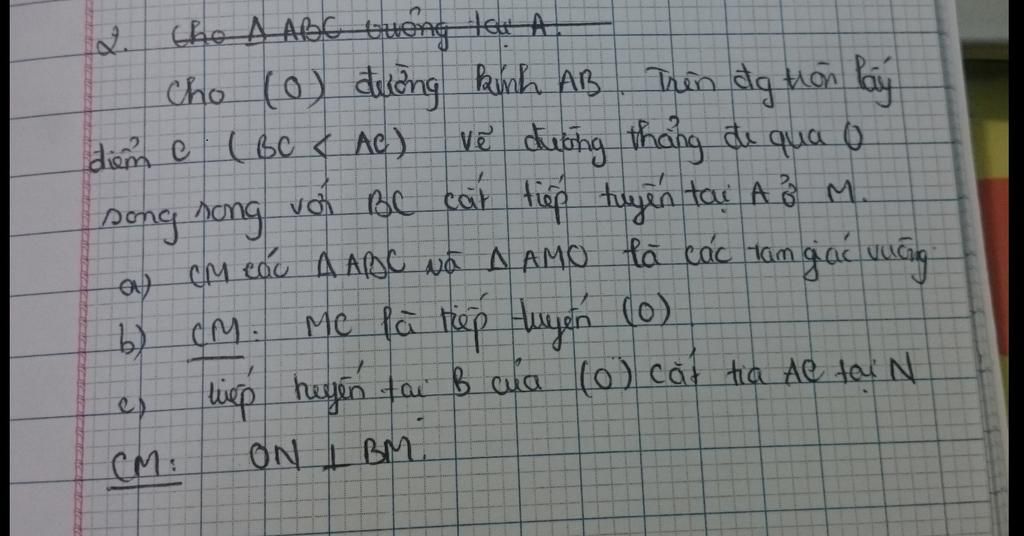 2. Cho Δ ABC vuông tại A.
Cho (O) đường kính AB. Trên đg tròn lấy
điểm C (BC < AC) vẽ đường thẳng đi qua O
song song với BC cắt tiếp tuyến tại A ở M.
a) CM các Δ ABC và Δ AMO là các tam giác vuông
b) CM: MC là tiếp tuyến (O)
c) tiếp tuyến tại B của (O) cắt tia AC tại N
CM: ON ⊥ BM.